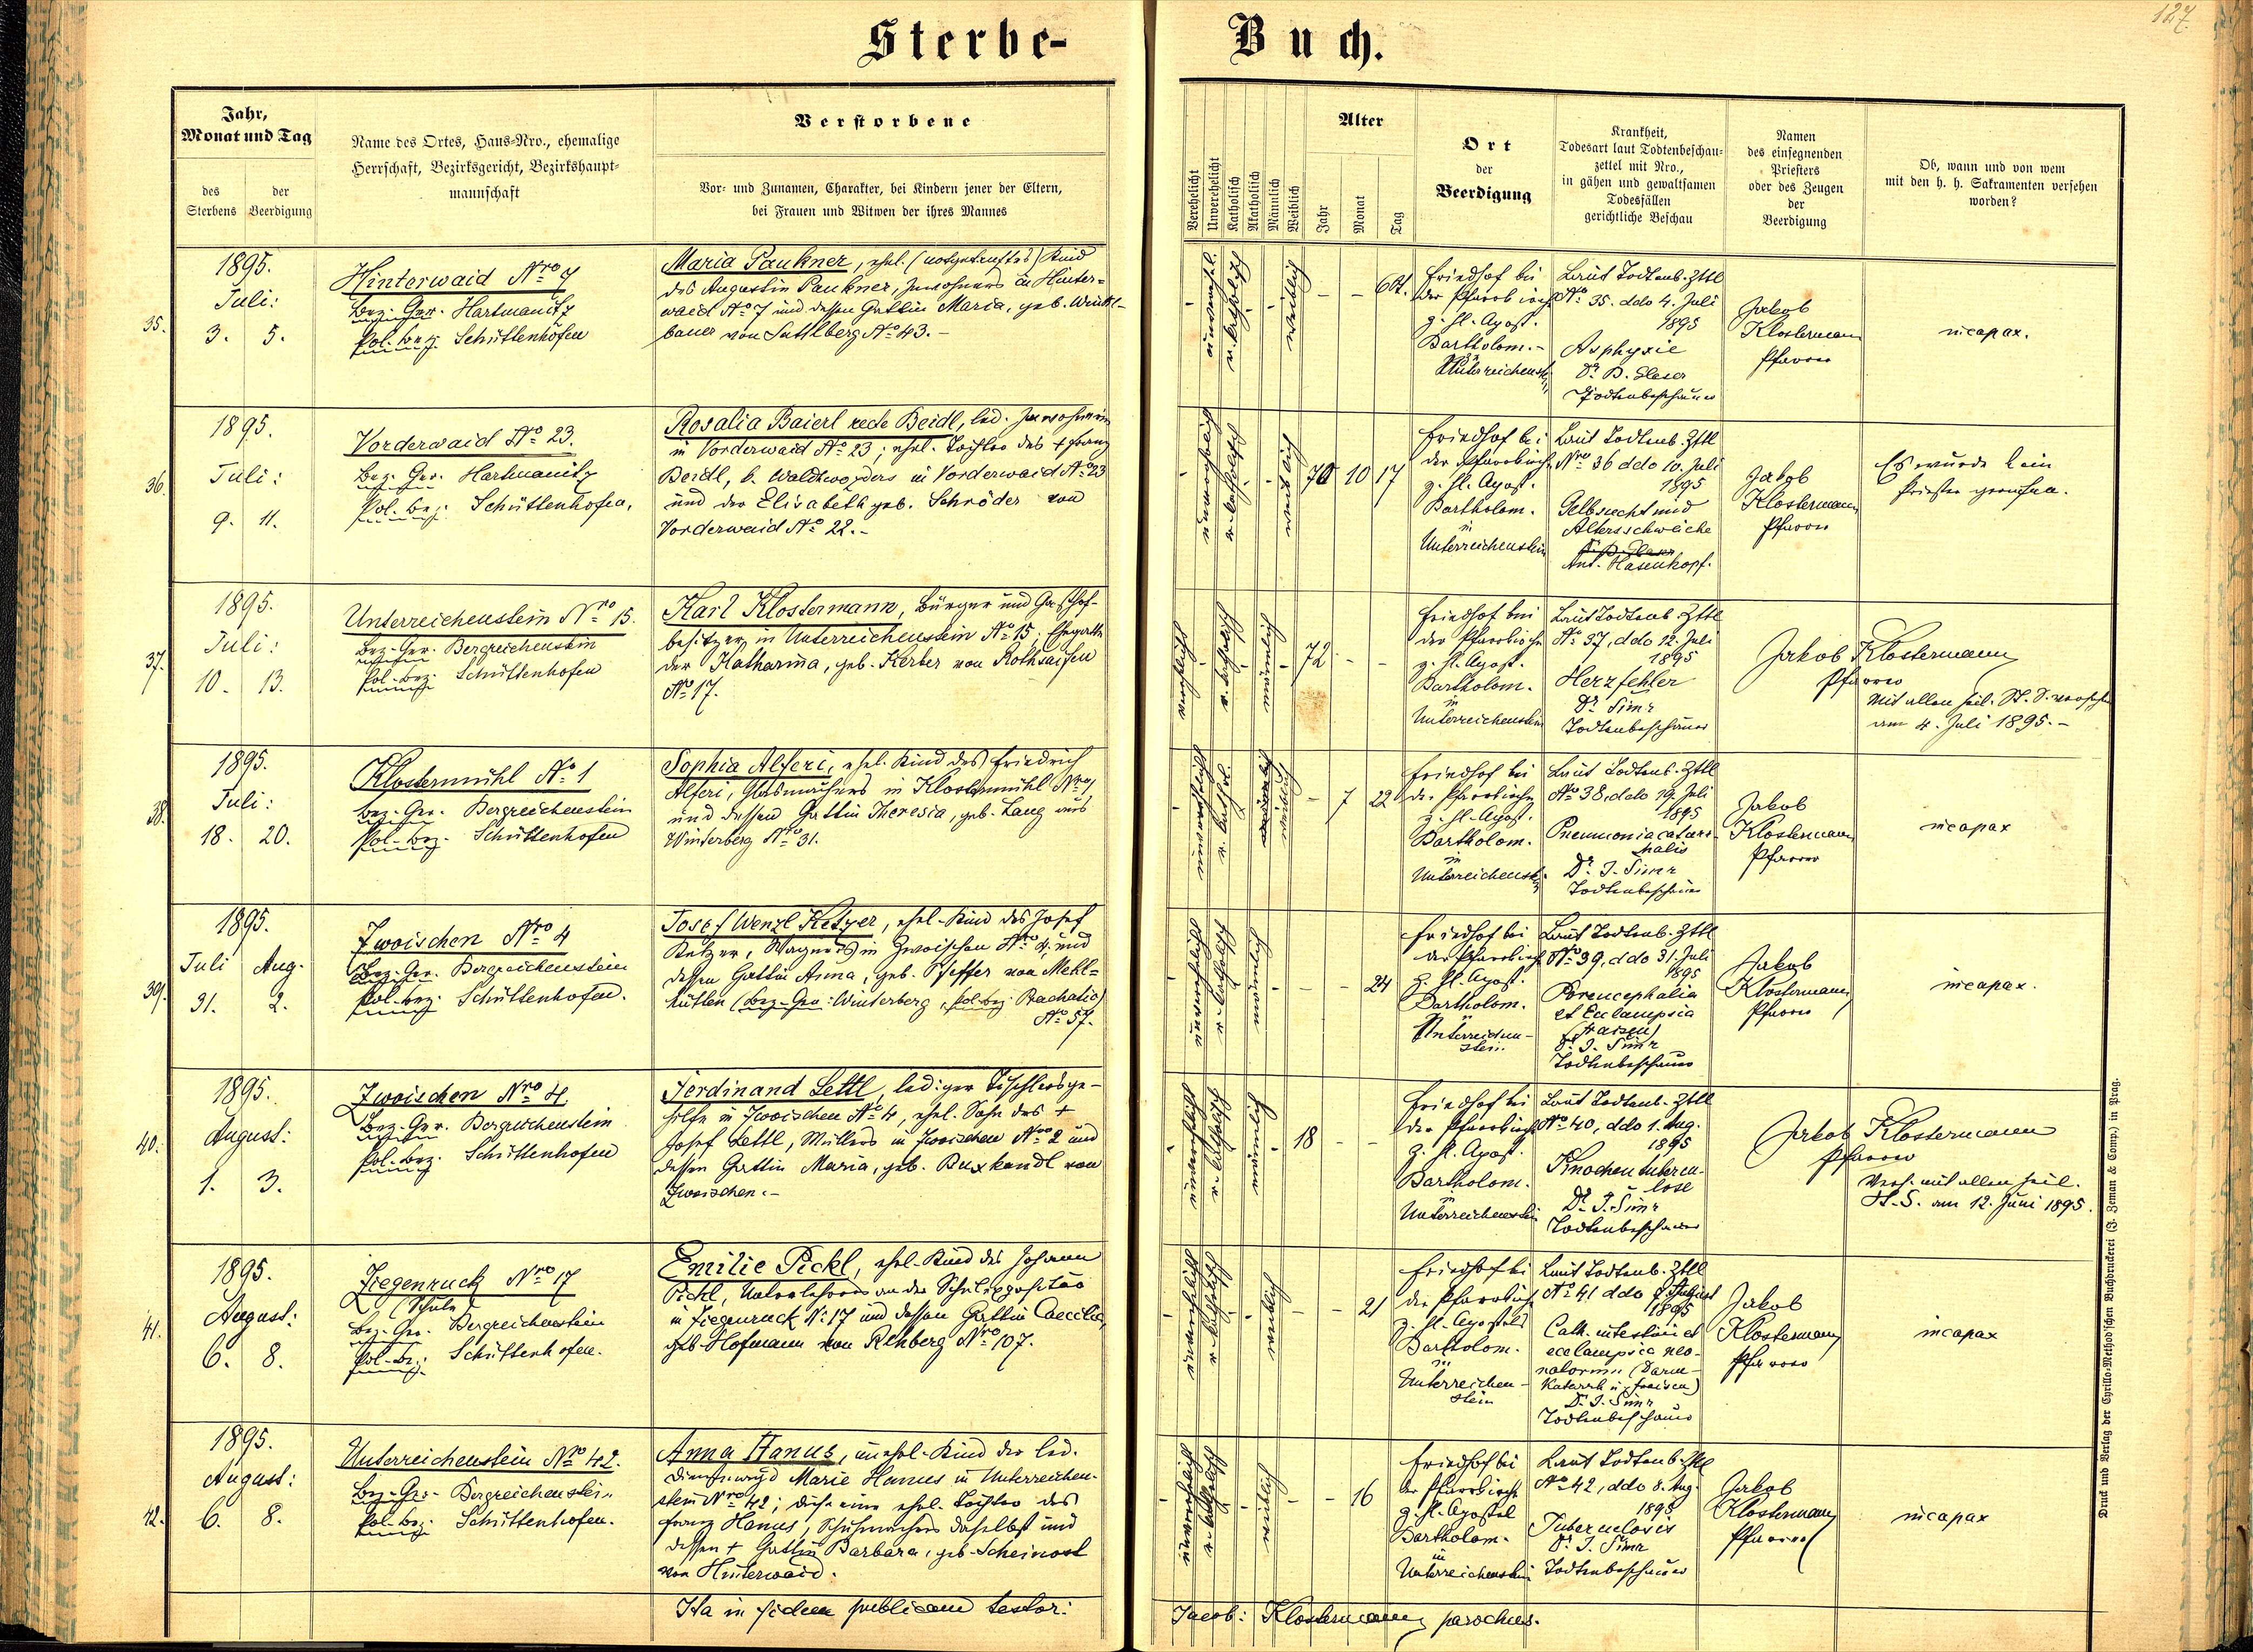 127.
Sterbe-
Buch.
Jahr,
Monat und Tag
des
Sterbens
der
Beerdigung
Name des Ortes, Haus-Nro., ehemalige
Herrschaft, Bezirksgericht, Bezirkshaupt-
mannschaft
Verstorbene
Vor- und Zunamen, Charakter, bei Kindern jener der Eltern,
bei Frauen und Witwen der ihres Mannes
Verehelicht
Unverehelicht
Katholisch
Akatholisch
Männlich
Weiblich
Alter
Jahr
Monat
Tag
Ort
der
Beerdigung
Krankheit,
Todesart laut Todtenbeschau-
zettel mit Nro.,
in gähen und gewaltsamen
Todesfällen
gerichtliche Beschau
Namen
des einsegnenden
Priesters
oder des Zeugen
der
Beerdigung
Ob, wann und von wem
mit den h. h. Sakramenten versehen
worden?
35.
1895.
Juli:
3. 5.
Hinterwaid Nro 7
Bez. Ger. Hartmanitz
Pol. bez. Schüttenhofen
Maria Paukner, ehel. (notgetauftes) Kind
des Augustin Paukner, Inwohners in Hinter-
waid No 7 und dessen Gattin Maria, geb. Winkl-
bauer von Sattlberg No 43.-
unverehel.
r. katholisch
weiblich
6 St.
Friedhof bei
der Pfarrkirche
z. hl. Apost.
Bartholom.-
in
Unterreichenst.
Laut Todtenb. Zttl
No: 35. ddo 4. Juli
1895
Asphyxie
Dr. B. Glaser
Todtenbeschauer
Jakob
Klostermann
Pfarrer
incapax.
36.
1895.
Juli:
9. 11.
Vorderwaid No 23.
Bez. Ger. Hartmanitz
Pol. bez. Schüttenhofen.
Rosalia Baierl recte Beidl, led. Inwohnerin
in Vorderwaid No 23; ehel. Tochter des + Franz
Beidl, b. Waldhwegers in Vorderwaid No 23
und der Elisabeth geb. Schröder von
Vorderwaid No 22.-
unverehelicht
r. katholisch
weiblich
70 10 17
Friedhof bei
der Pfarrkirche
z. hl. Apost.
Bartholom.
in
Unterreichenstein
Laut Todtenb. Zttl
Nro 36 ddo 10. Juli
1895
Gelbsucht und
Altersschwäche
Dr. B. Glaser
Ant. Hasenkopf.
Jakob
Klostermann
Pfarrer
Es wurde kein
Priester gerufen.
37.
1895.
Juli:
10. 13.
Unterreichenstein Nro 15.
Bez. Ger. Bergreichenstein
Pol. Bez. Schüttenhofen
Karl Klostermann, Bürger und Gasthof-
besitzer in Unterreichenstein No 15; Ehegatte
der Katharina, geb. Kerber von Rothsaifen
No 17.
verehelicht
r. katholisch
männlich
72
Friedhof bei
der Pfarrkirche
z. hl. Apost.
Bartholom.
in
Unterreichenstein
Laut Todtenb. Zttl
No 37, ddo 12. Juli
1895
Herzfehler
Dr. Simr
Todtenbeschauer
Jakob Klostermann
Pfarrer
Mit allen heil. St. S. versehen
am 4. Juli 1895.-
38.
1895.
Juli:
18. 20.
Klostermühl No 1
Bez. Ger. Bergreichenstein
Pol. bez. Schüttenhofen
Sophia Alferi, ehel. Kind des Friedrich
Alferi, Glasmachers in Klostermühl Nro 1,
und dessen Gattin Theresia, geb. Lang aus
Winterberg Nro 31.
unverehelicht
r. kathol.
weiblich
7 22
Friedhof bei
der Pfarrkirche
z. hl. Apost.
Bartholom.
in
Unterreichenst.
Laut Todtenb. Zttl
No 38, ddo 19. Juli
1895
Pneumonia catarr-
halis
Dr. J. Simr
Todtenbeschauer
Jakob
Klostermann
Pfarrer
incapax
39.
1895.
Juli Aug.
31. 2.
Zwoischen Nro 4
Bez. Ger. Bergreichenstein
Pol. bez. Schüttenhofen.
Josef Wenzl Ketzer, ehel. Kind des Josef
Ketzer, Wagners in Zwoischen Nro 4, und
dessen Gattin Anna, geb. Pfeffer von Mehl-
hütten (Bez. Ger. Winterberg, pol. bez. Prachatic)
No 57.
unverehelicht
r. katholisch
männlich
24
Friedhof bei
der Pfarrkirche
z. hl. Apost.
Bartholom.
in
Unterreichen-
stein
Laut Todtenb. Zttl
No 39, ddo 31. Juli
1895
Porencephalia
et Enlampsia
(Fraisen)
Dr. J. Simr
Todtenbeschauer
Jakob
Klostermann
Pfarrer
incapax.
40.
1895.
August:
1. 3.
Zwoischen Nro 4.
Bez. Ger. Bergreichenstein
Pol. bez. Schüttenhofen
Ferdinand Lettl, lediger Tischlersge-
hilfe in Zwoischen No 4, ehel. Sohn des +
Josef Lettl, Müllers in Zwoischen Nro 2 und
dessen Gattin Maria, geb. Buxkandl von
Zwoischen.-
unverehelicht
r. katholisch
männlich
18
Friedhof bei
der Pfarrkirche
z. hl. Apost.
Bartholom.
in
Unterreichenstein
Laut Todtenb. Zttl
No 40, ddo 1. Aug.
1895
Knochentuberku-
lose
Dr. J. Simr
Todtenbeschauer
Jakob Klostermann
Pfarrer
Vers. mit allen heil.
St. S. am 12. Juni 1895.
41.
1895.
August:
6. 8.
Ziegenruck Nro 17
(Schule)
Bez. Ger. Bergreichenstein
Pol. Bez. Schüttenhofen.
Emilie Pickl, ehel. Kind des Johann
Pickl, Unterlehrers an der Schulexpositur
in Ziegenruck No 17 und dessen Gattin Caecilia,
geb. Hofmann von Rehberg Nro 107.
unverehelicht
r. katholisch
weiblich
21
Friedhof bei
der Pfarrkirche
z. hl. Apostel
Bartholom.
in
Unterreichen-
stein
Laut Todtenb. Zttl
No 41 ddo 7. August
1895
Cath. intestin. et
ecclampsia neo-
natorum (Darm-
Katarrh u. Fraisen)
Dr. J. Simr
Todtenbeschauer
Jakob
Klostermann
Pfarrer
incapax
42.
1895.
August:
6. 8.
Unterreichenstein Nro 42.
Bez. Ger. Bergreichenstein
Pol. Bez. Schüttenhofen.
Anna Hanus, unehel. Kind der led.
Dienstmagd Marie Hanus in Unterreichen-
stein Nro 42; diese eine ehel. Tochter des
Franz Hanus, Schuhmachers daselbst und
dessen + Gattin Barbara, geb. Scheinost
von Hinterwaid.
unverehelicht
r. katholisch
weiblich
16
Friedhof bei
der Pfarrkirche
z. hl. Apostel
Bartholom.
in
Unterreichenstein
Laut Todtenb. Zttl
No 42, ddo 8. Aug.
1895
Tuberculosis
Dr. J. Simr
Todtenbeschauer
Jakob
Klostermann
Pfarrer
incapax
Ita in fidem publicam testor:
Jacob: Klostermann parochus.
Druck und Verlag der Cyrillo-Method'schen Buchdruckerei (J. Zeman & Comp.) in Prag.